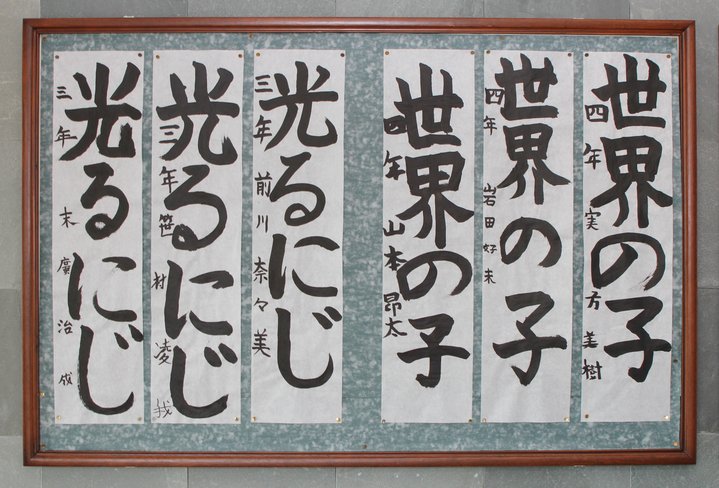 世界の子
四年 実方美樹
世界の子
四年 岩田好未
世界の子
四年 山本昂太
光るにじ
三年 前川奈々美
光るにじ
三年 笹村凌我
光るにじ
三年 末廣治成